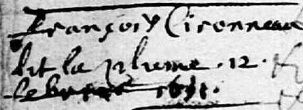 françoys Cironneau
dit la plume . 12 .
febvrier 1681.